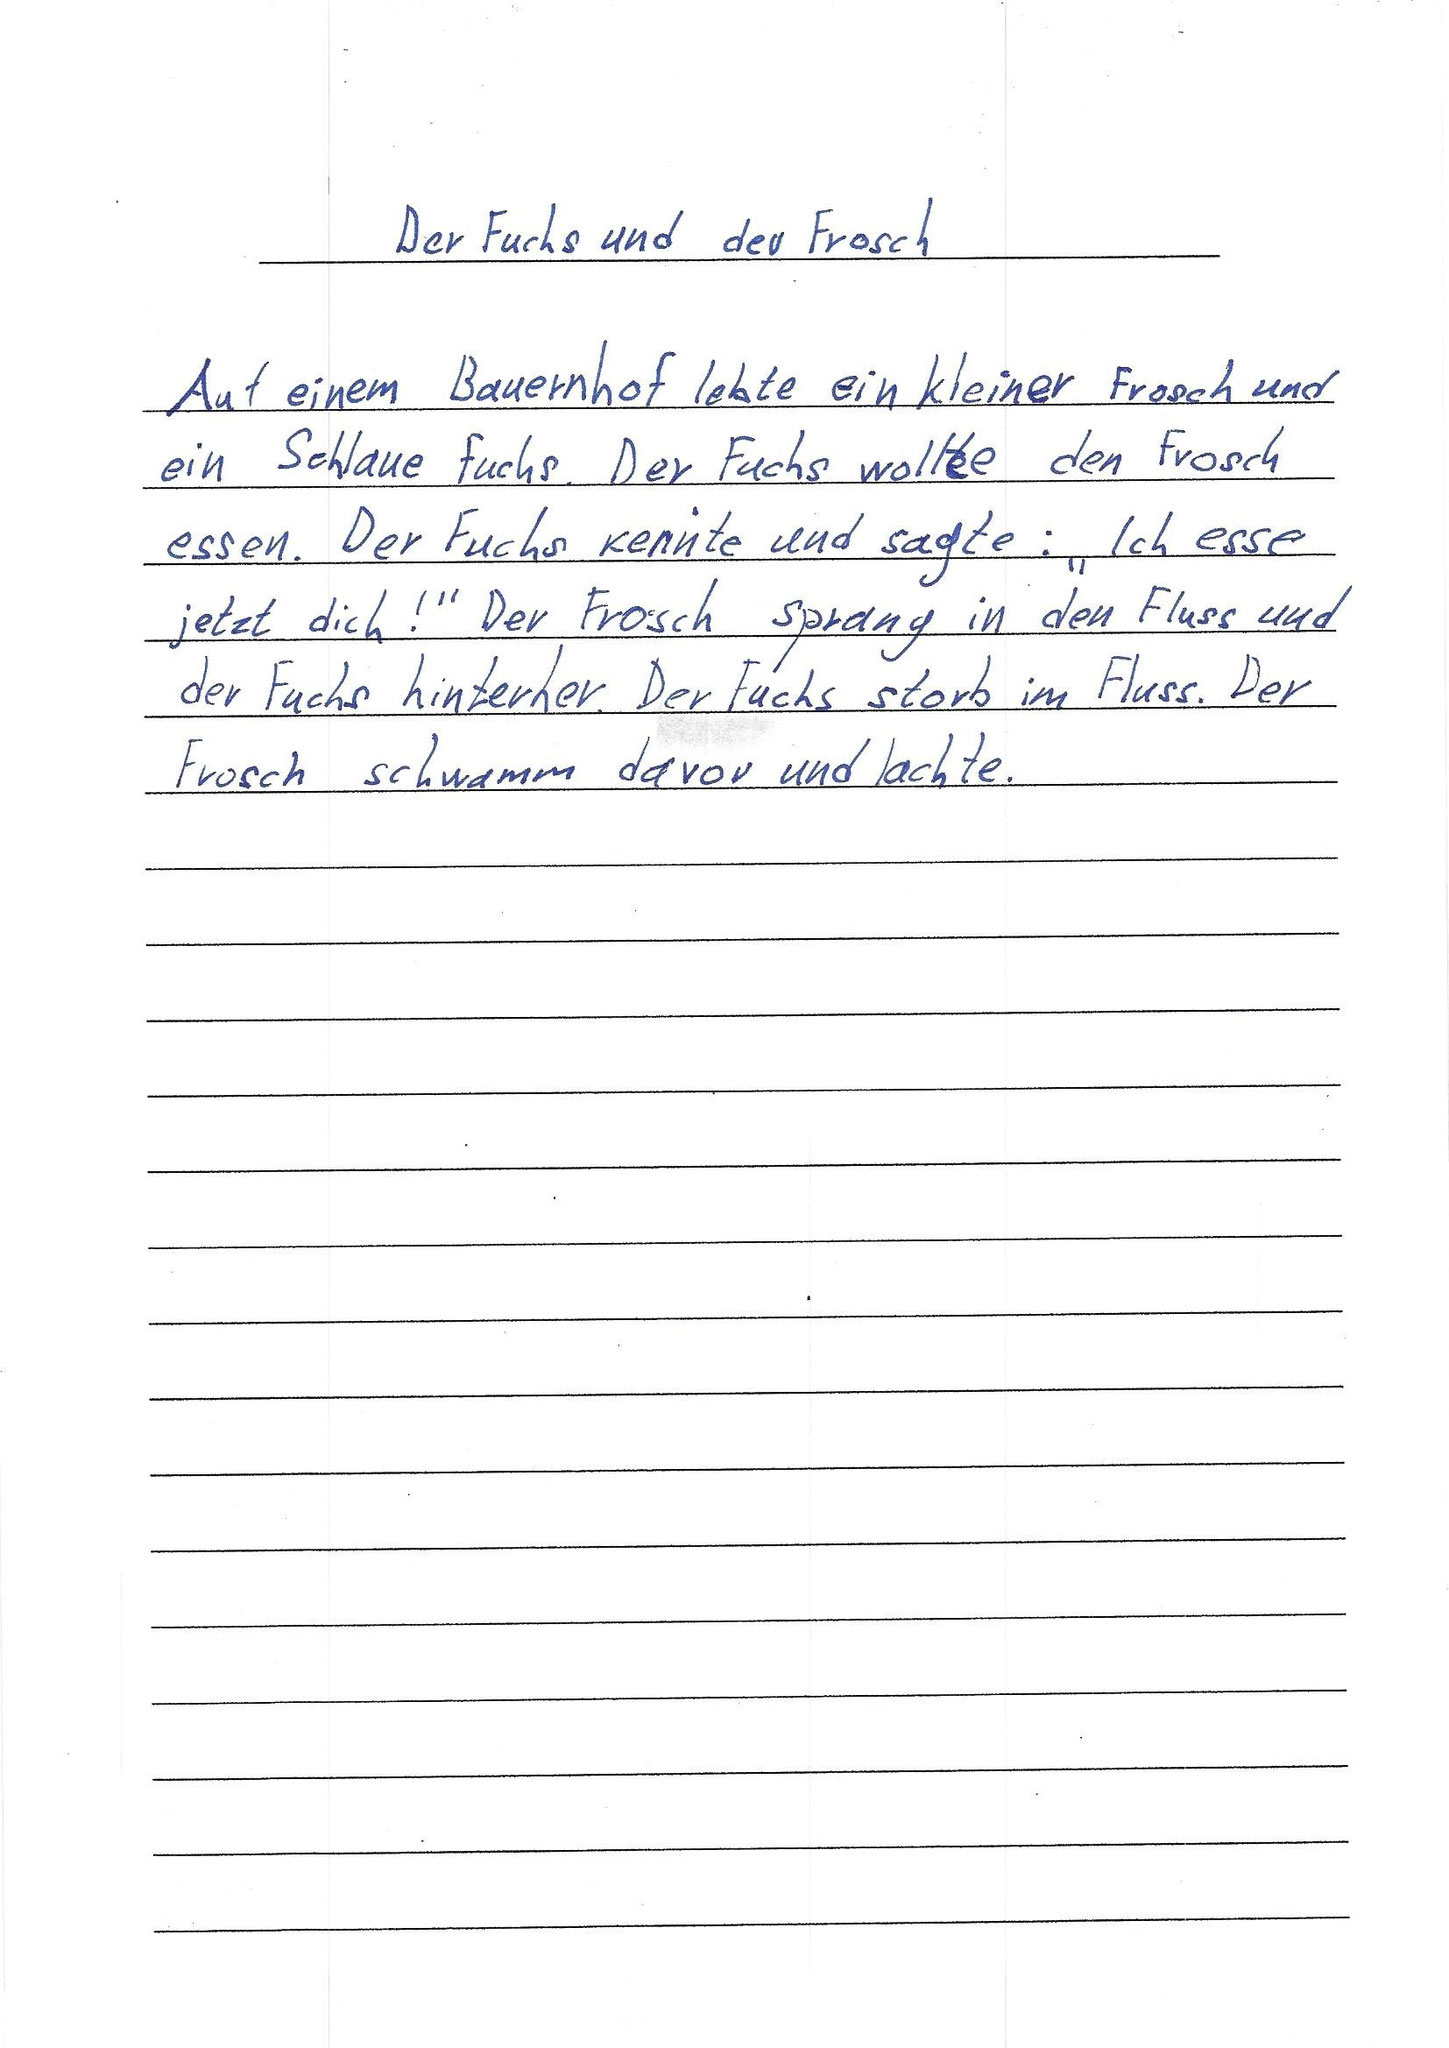 Der Fuchs und der Frosch
Auf einem Bauernhof lebte ein kleiner Frosch und
ein Schlaue fuchs. Der Fuchs wollte den Frosch
essen. Der Fuchs kennte und sagte: „Ich esse
jetzt dich!" Der Frosch sprang in den Fluss und
der Fuchs hinterher. Der Fuchs storb im Fluss. Der
Frosch schwamm davor und lachte.